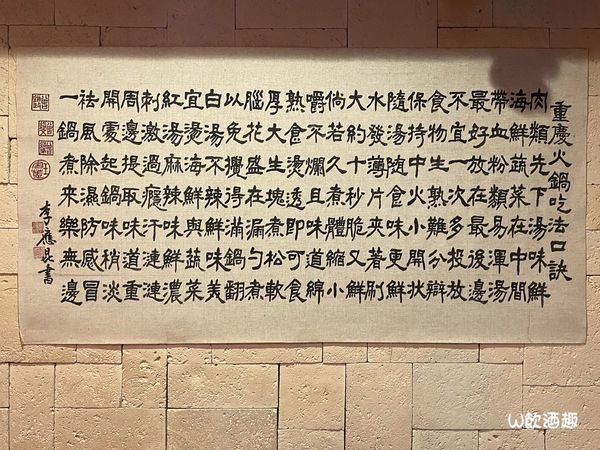 重慶火鍋吃法口訣
肉類先下湯味鮮
海鮮蔬菜在中間
帶血粉類易渾湯
最好放在最後邊
不宜一次多投放
食物生熟難分辯
保持中火小開狀
隨湯隨食味更鮮
水發薄片夾著刷
大約十秒脆又鮮
倘若久煮體縮小
嚼不爛且味道綿
熟食燙透即可食
厚大生塊煮松軟
腦花盛在漏勺煮
以免攪得滿鍋翻
白湯不辣鮮味美
宜燙海鮮與蔬菜
紅湯麻辣味鮮濃
刺激過癮汗漣漣
周邊提取味道重
開處起鍋味稍淡
祛風除濕防感冒
一鍋煮來樂無邊
李應昆書
W飲酒趣